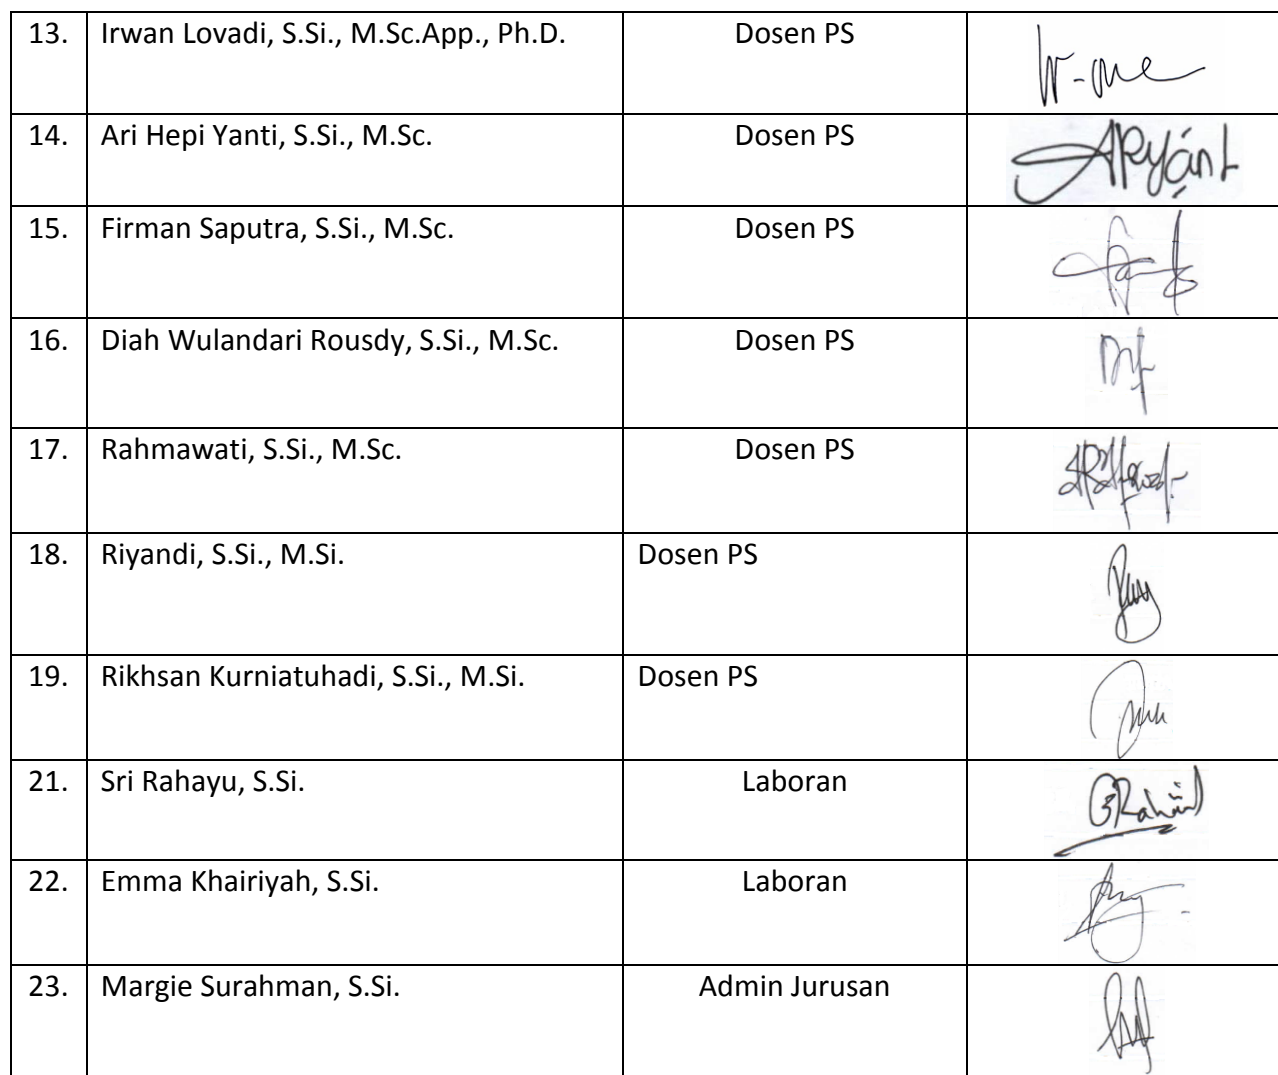 13. Irwan Lovadi, S.Si., M.Sc.App., Ph.D. Dosen PS
14. Ari Hepi Yanti, S.Si., M.Sc. Dosen PS
15. Firman Saputra, S.Si., M.Sc. Dosen PS
16. Diah Wulandari Rousdy, S.Si., M.Sc. Dosen PS
17. Rahmawati, S.Si., M.Sc. Dosen PS
18. Riyandi, S.Si., M.Si. Dosen PS
19. Rikhsan Kurniatuhadi, S.Si., M.Si. Dosen PS
21. Sri Rahayu, S.Si. Laboran
22. Emma Khairiyah, S.Si. Laboran
23. Margie Surahman, S.Si. Admin Jurusan